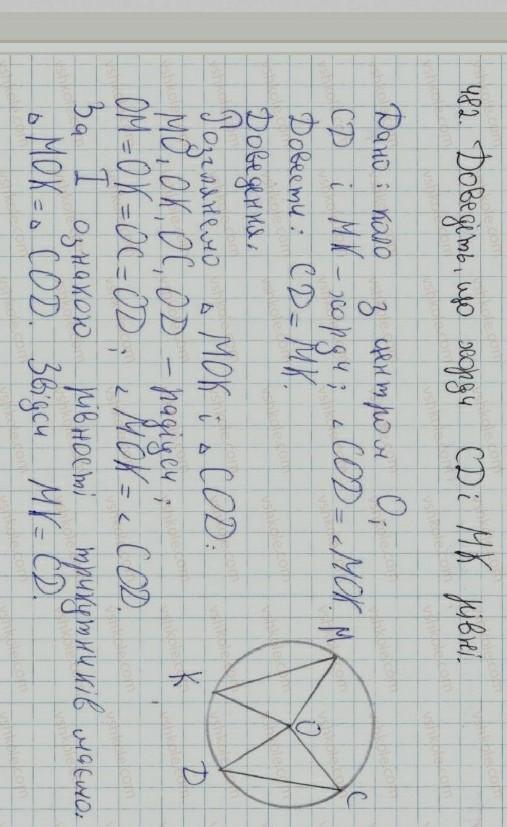 482. Доведіть, що хорди CD і MK рівні.
Дано: коло з центром O;
CD і MK - хорди; ∠COD = ∠MOK.
Довести: CD = MK.
Доведення.
Розглянемо △MOK і △COD:
MO, OK, OC, OD - радіуси;
OM = OK = OC = OD; ∠MOK = ∠COD.
За I ознакою рівності трикутників маємо:
△MOK = △COD. Звідси MK = CD.
M
K
O
D
C
vshkole.com